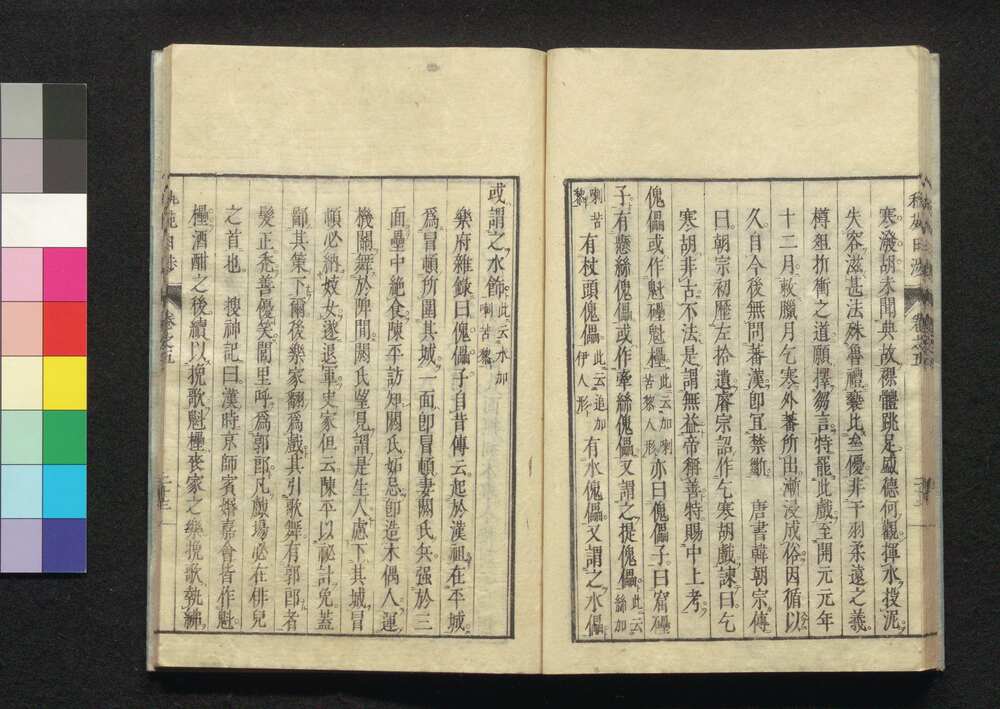 寒潑胡未聞典故裸體跳足盛德何觀揮水投泥
失容滋甚法殊魯禮褻比齊優非干羽柔遠之義
樽俎折衝之道願擇芻言特罷此戲至開元元年
十二月敕臘月乞寒外蕃所出漸浸成俗因循以
久自今後無問蕃漢卽宜禁斷　唐書韓朝宗傳
曰朝宗初歷左拾遺睿宗詔作乞寒胡戲諫曰乞
寒胡非古不法是謂無益帝稱善特賜中上考
傀儡或作魁礧魁櫑此云加喇苦黎人形亦曰傀儡子曰窟礧
子有懸絲傀儡或作牽絲傀儡又謂之提傀儡此云絲加
喇苦黎有杖頭傀儡此云追加伊人形有水傀儡又謂之水儡
或謂之水飾此云水加喇苦黎
樂府雜錄曰傀儡子自昔傳云起於漢祖在平城
爲冒頓所圍其城一面卽冒頓妻閼氏兵强於三
面壘中絶食陳平訪知閼氏妬忌卽造木偶人運
機關舞於陴間閼氏望見謂是生人慮下其城冒
頓必納妓女遂退軍史家但云陳平以祕計免蓋
鄙其策下爾後樂家翻爲戲其引歌舞有郭郎者
髮正禿善優笑閭里呼爲郭郎凡戲場必在俳兒
之首也　搜神記曰漢時京師賓婚嘉會皆作魁
櫑酒酣之後續以挽歌魁櫑喪家之樂挽歌執紼
卷之五
卷之五